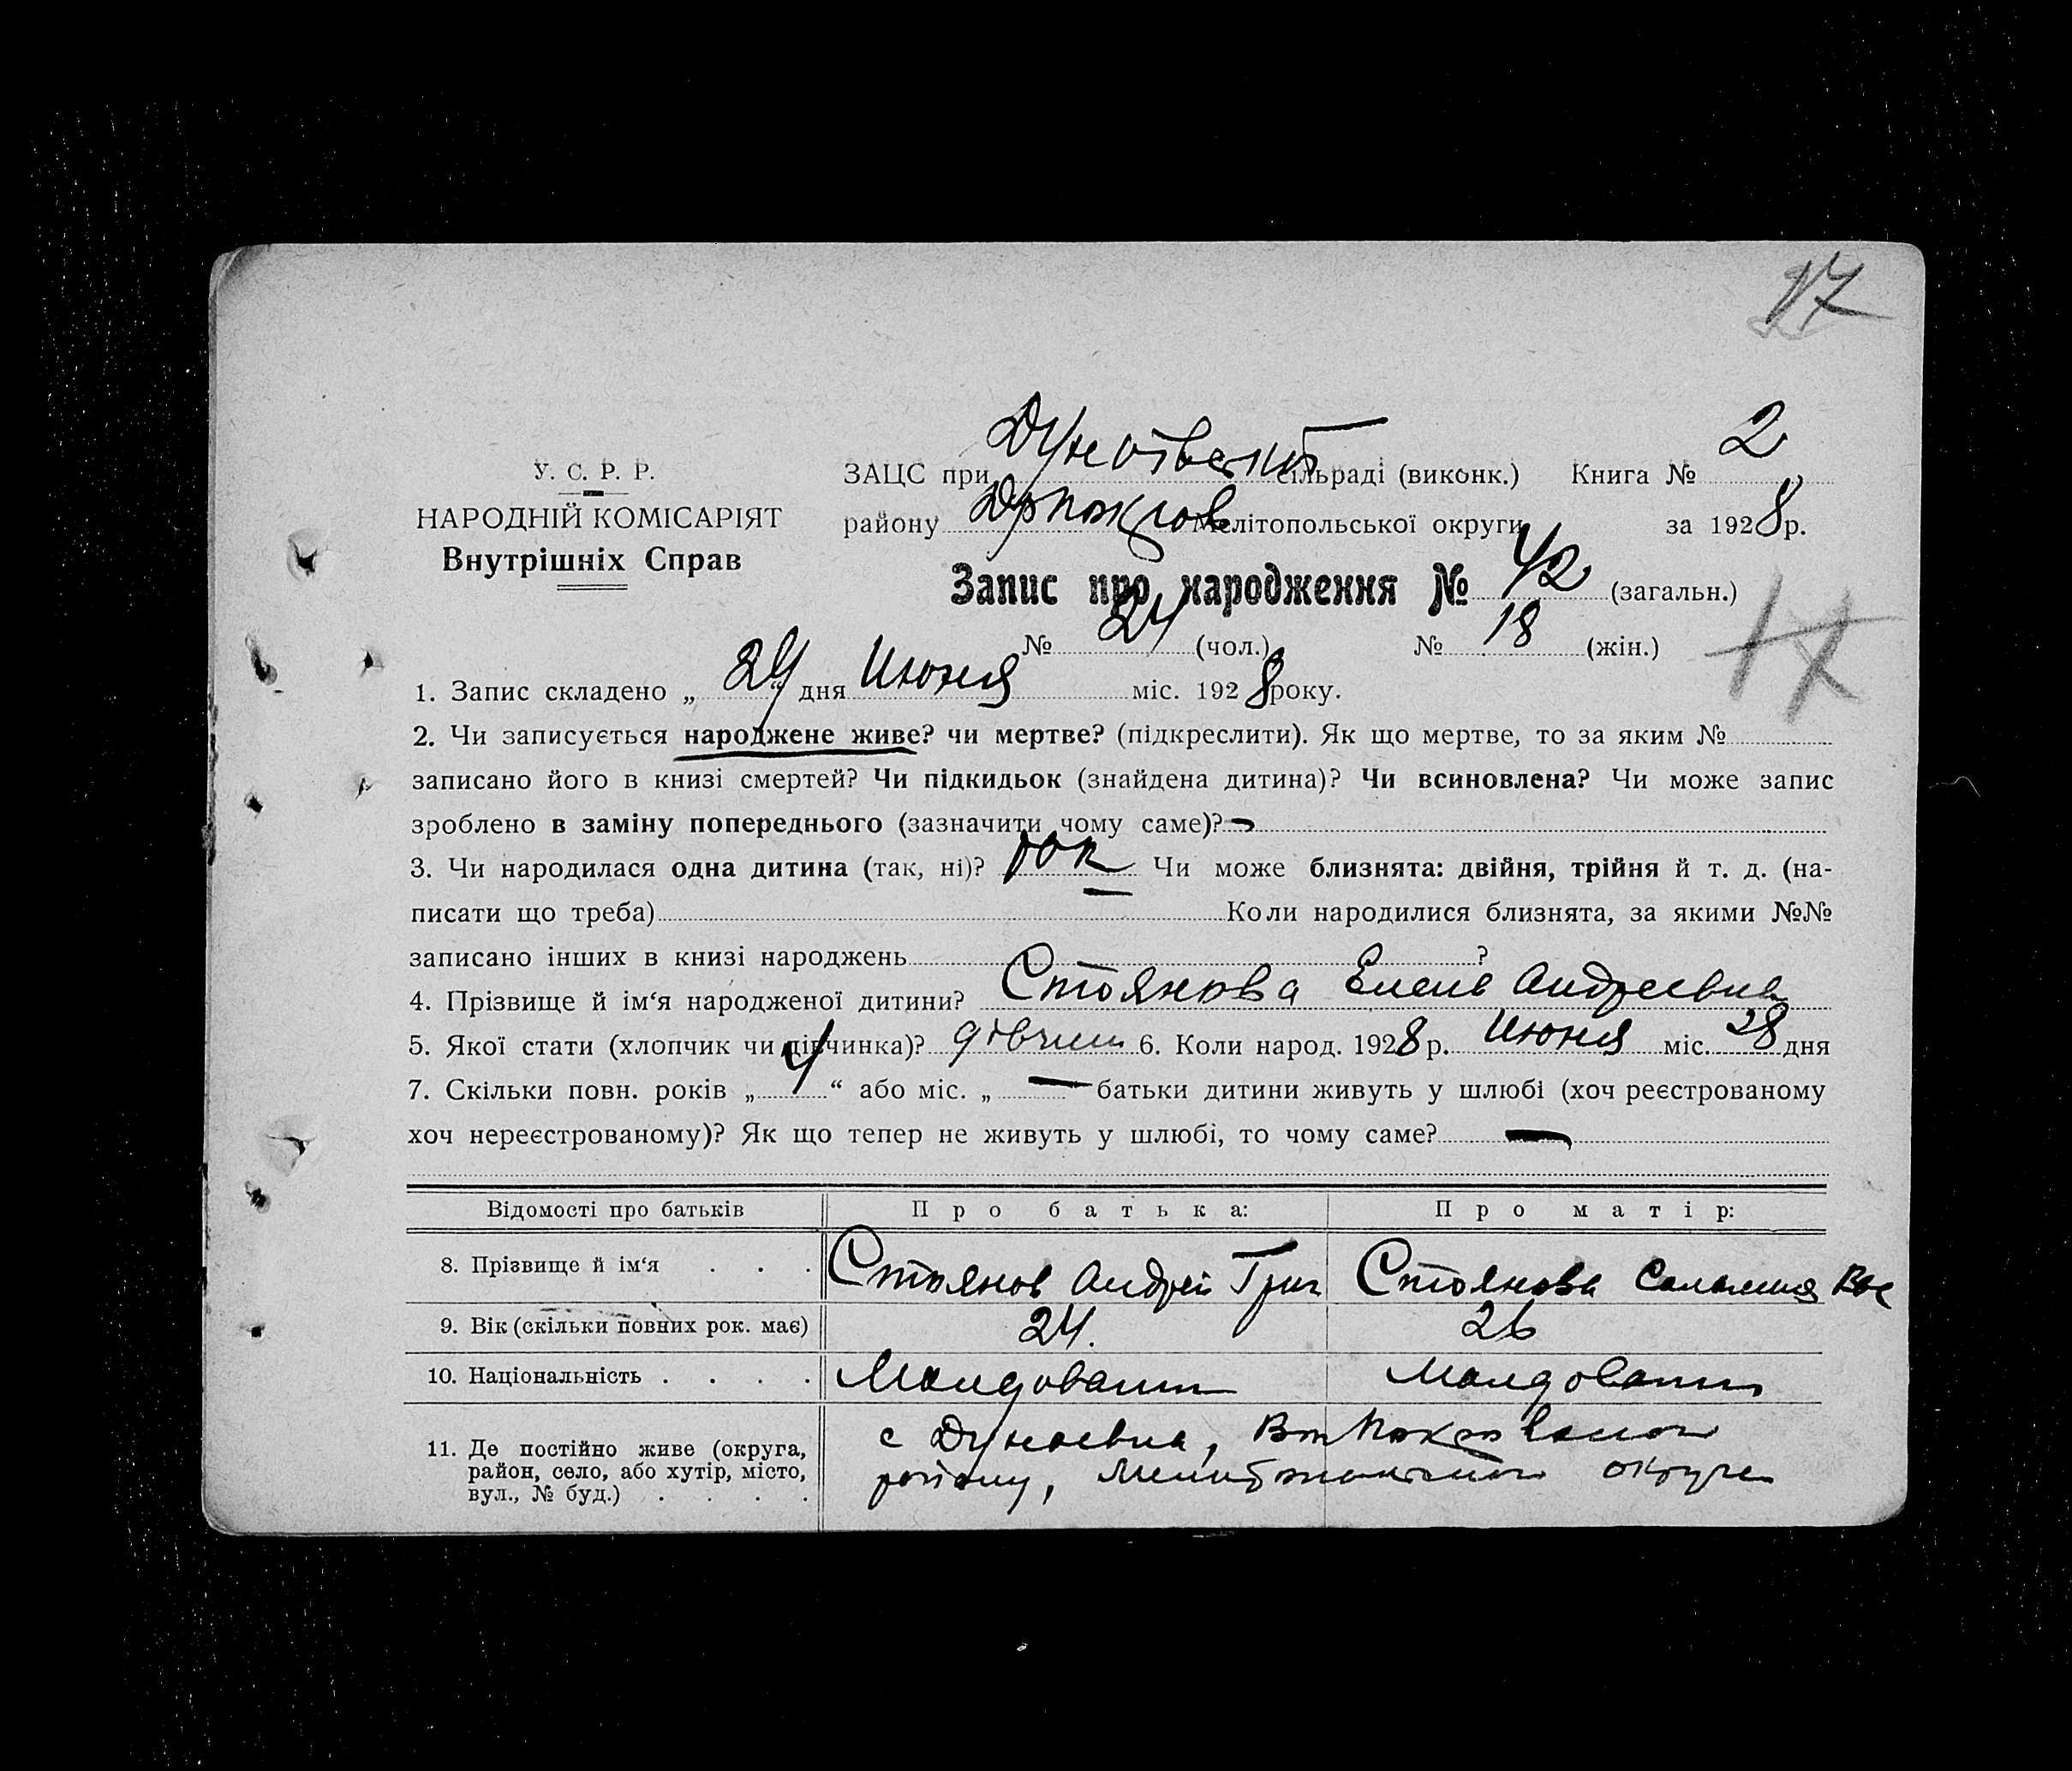 17
У. С. Р. Р.
НАРОДНІЙ КОМІСАРІЯТ
Внутрішніх Справ
ЗАЦС при сільраді (виконк.) Книга № 2
району Мелітопольської округи за 1928 р.
Запис про народження № 42 (загальн.)
№ 24 (чол.) № 18 (жін.)
17
1. Запис складено „ 24 “ дня Июня міс. 1928 року.
2. Чи записується народжене живе? чи мертве? (підкреслити). Як що мертве, то за яким №
записано його в книзі смертей? Чи підкидьок (знайдена дитина)? Чи всиновлена? Чи може запис
зроблено в заміну попереднього (зазначити чому саме)? —
3. Чи народилася одна дитина (так, ні)? Чи може близнята: двійня, трійня й т. д. (на-
писати що треба) Коли народилися близнята, за якими №№
записано інших в книзі народжень ?
4. Прізвище й ім‘я народженої дитини? Стоянова Елена Андреевна
5. Якої стати (хлопчик чи дівчинка)? дівчин 6. Коли народ. 1928 р. Июня міс. 28 дня
7. Скільки повн. років „ 4 “ або міс. „ — батьки дитини живуть у шлюбі (хоч реєстрованому
хоч нереєстрованому)? Як що тепер не живуть у шлюбі, то чому саме? —
Відомості про батьків Про батька: Про матір:
8. Прізвище й ім‘я . . . Стоянов Андрей Григ Стоянова Вас
9. Вік (скільки повних рок. має) 24. 26
10. Національність . . . . Молдован Молдован
11. Де постійно живе (округа, с Дунаевка,
район, село, або хутір, місто, району, округи
вул., № буд.) . . . .